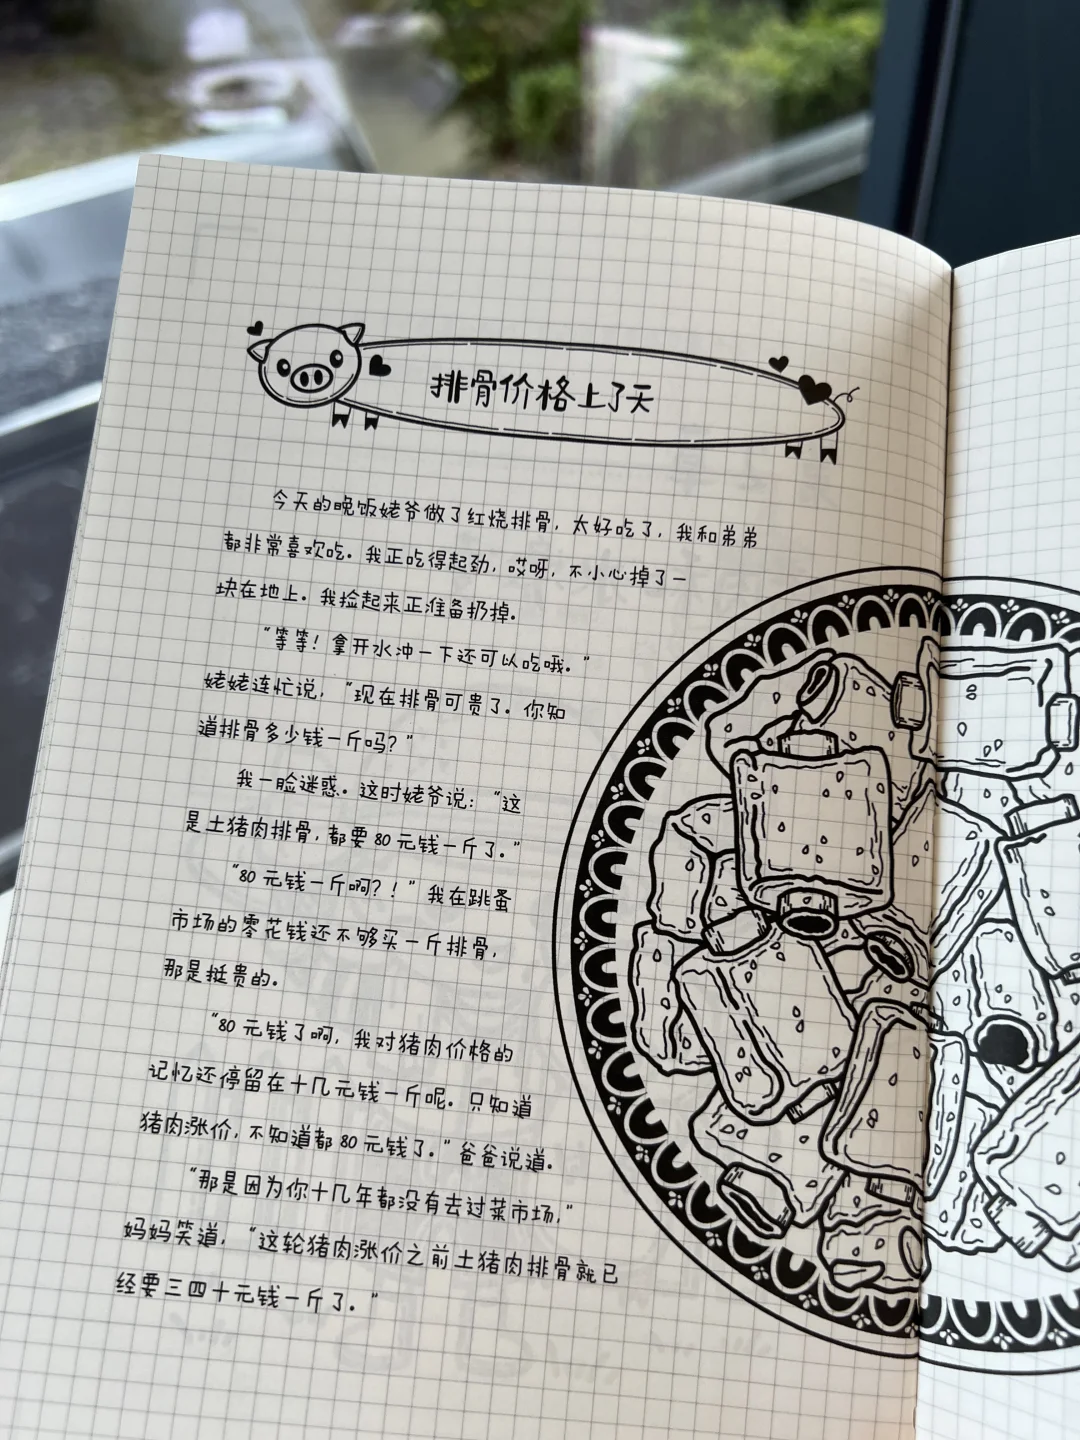 排骨价格上了天
今天的晚饭姥爷做了红烧排骨，太好吃了，我和弟弟
都非常喜欢吃。我正吃得起劲，哎呀，不小心掉了一
块在地上。我捡起来正准备扔掉。
“等等！拿开水冲一下还可以吃哦。”
姥姥连忙说，“现在排骨可贵了。你知
道排骨多少钱一斤吗？”
我一脸迷惑。这时姥爷说：“这
是土猪肉排骨，都要80元钱一斤了。”
“80元钱一斤啊？！”我在跳蚤
市场的零花钱还不够买一斤排骨，
那是挺贵的。
“80元钱了啊，我对猪肉价格的
记忆还停留在十几元钱一斤呢。只知道
猪肉涨价，不知道都80元钱了。”爸爸说道。
“那是因为你十几年都没有去过菜市场，”
妈妈笑道，“这轮猪肉涨价之前土猪肉排骨就已
经要三四十元钱一斤了。”